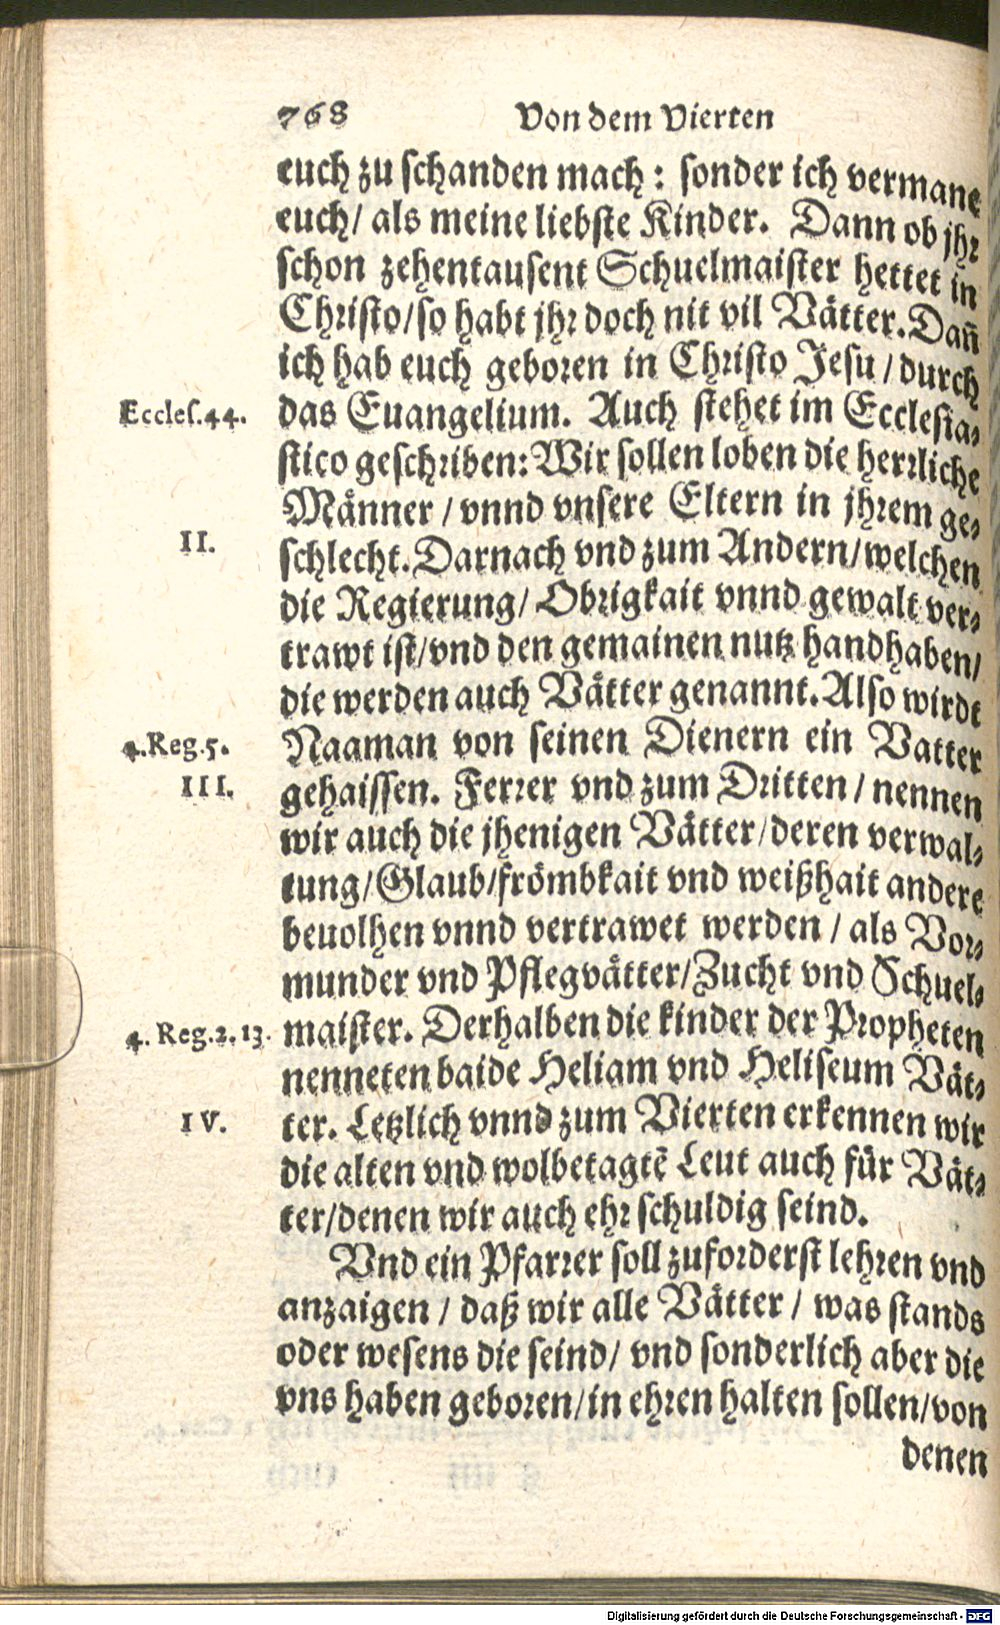 768 Von dem Vierten
euch zu schanden mach: sonder ich vermane
euch/ als meine liebste Kinder. Dann ob jhr
schon zehentausent Schuelmaister hettet in
Christo/so habt jhr doch nit vil Vätter. Dañ
ich hab euch geboren in Christo Jesu/durch
Eccles.44. das Euangelium. Auch stehet im Ecclesia-
stico geschriben: Wir sollen loben die herrliche
Männer/vnnd vnsere Eltern in jhrem ge-
II. schlecht. Darnach vnd zum Andern/welchen
die Regierung/ Obrigkait vnnd gewalt ver-
trawt ist/vnd den gemainen nutz handhaben/
die werden auch Vätter genannt. Also wirdt
4.Reg.5. Naaman von seinen Dienern ein Vatter
III. gehaissen. Ferrer vnd zum Dritten/nennen
wir auch die jhenigen Vätter/deren verwal-
tung/Glaub/frömbkait vnd weißhait andere
beuolhen vnnd vertrawet werden/als Vor-
munder vnd Pflegvätter/Zucht vnd Schuel-
4.Reg.2.13. maister. Derhalben die kinder der Propheten
nenneten baide Heliam vnd Heliseum Vät-
IV. ter. Letzlich vnnd zum Vierten erkennen wir
die alten vnd wolbetagtē Leut auch für Vät-
ter/denen wir auch ehr schuldig seind.
Vnd ein Pfarrer soll zuforderst lehren vnd
anzaigen/daß wir alle Vätter/was stands
oder wesens die seind/ vnd sonderlich aber die
vns haben geboren/in ehren halten sollen/von
denen
Digitalisierung gefördert durch die Deutsche Forschungsgemeinschaft - DFG